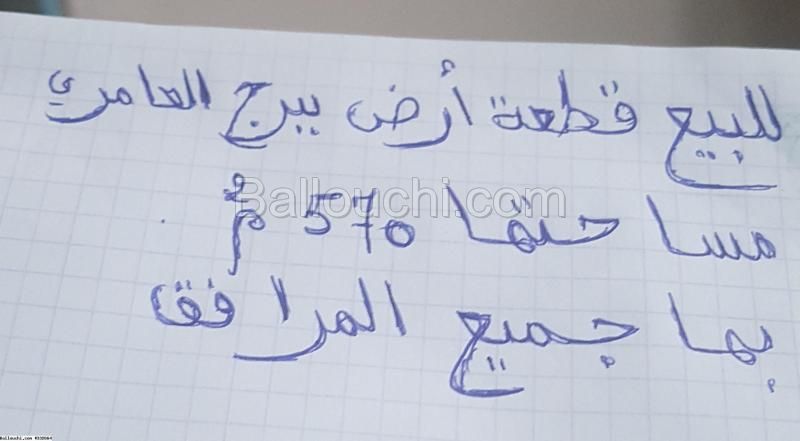 للبيع قطعة أرض ببرج العامري
مساحتها 570 م²
بها جميع المرافق
Ballouchi.com
Ballouchi.com #332064